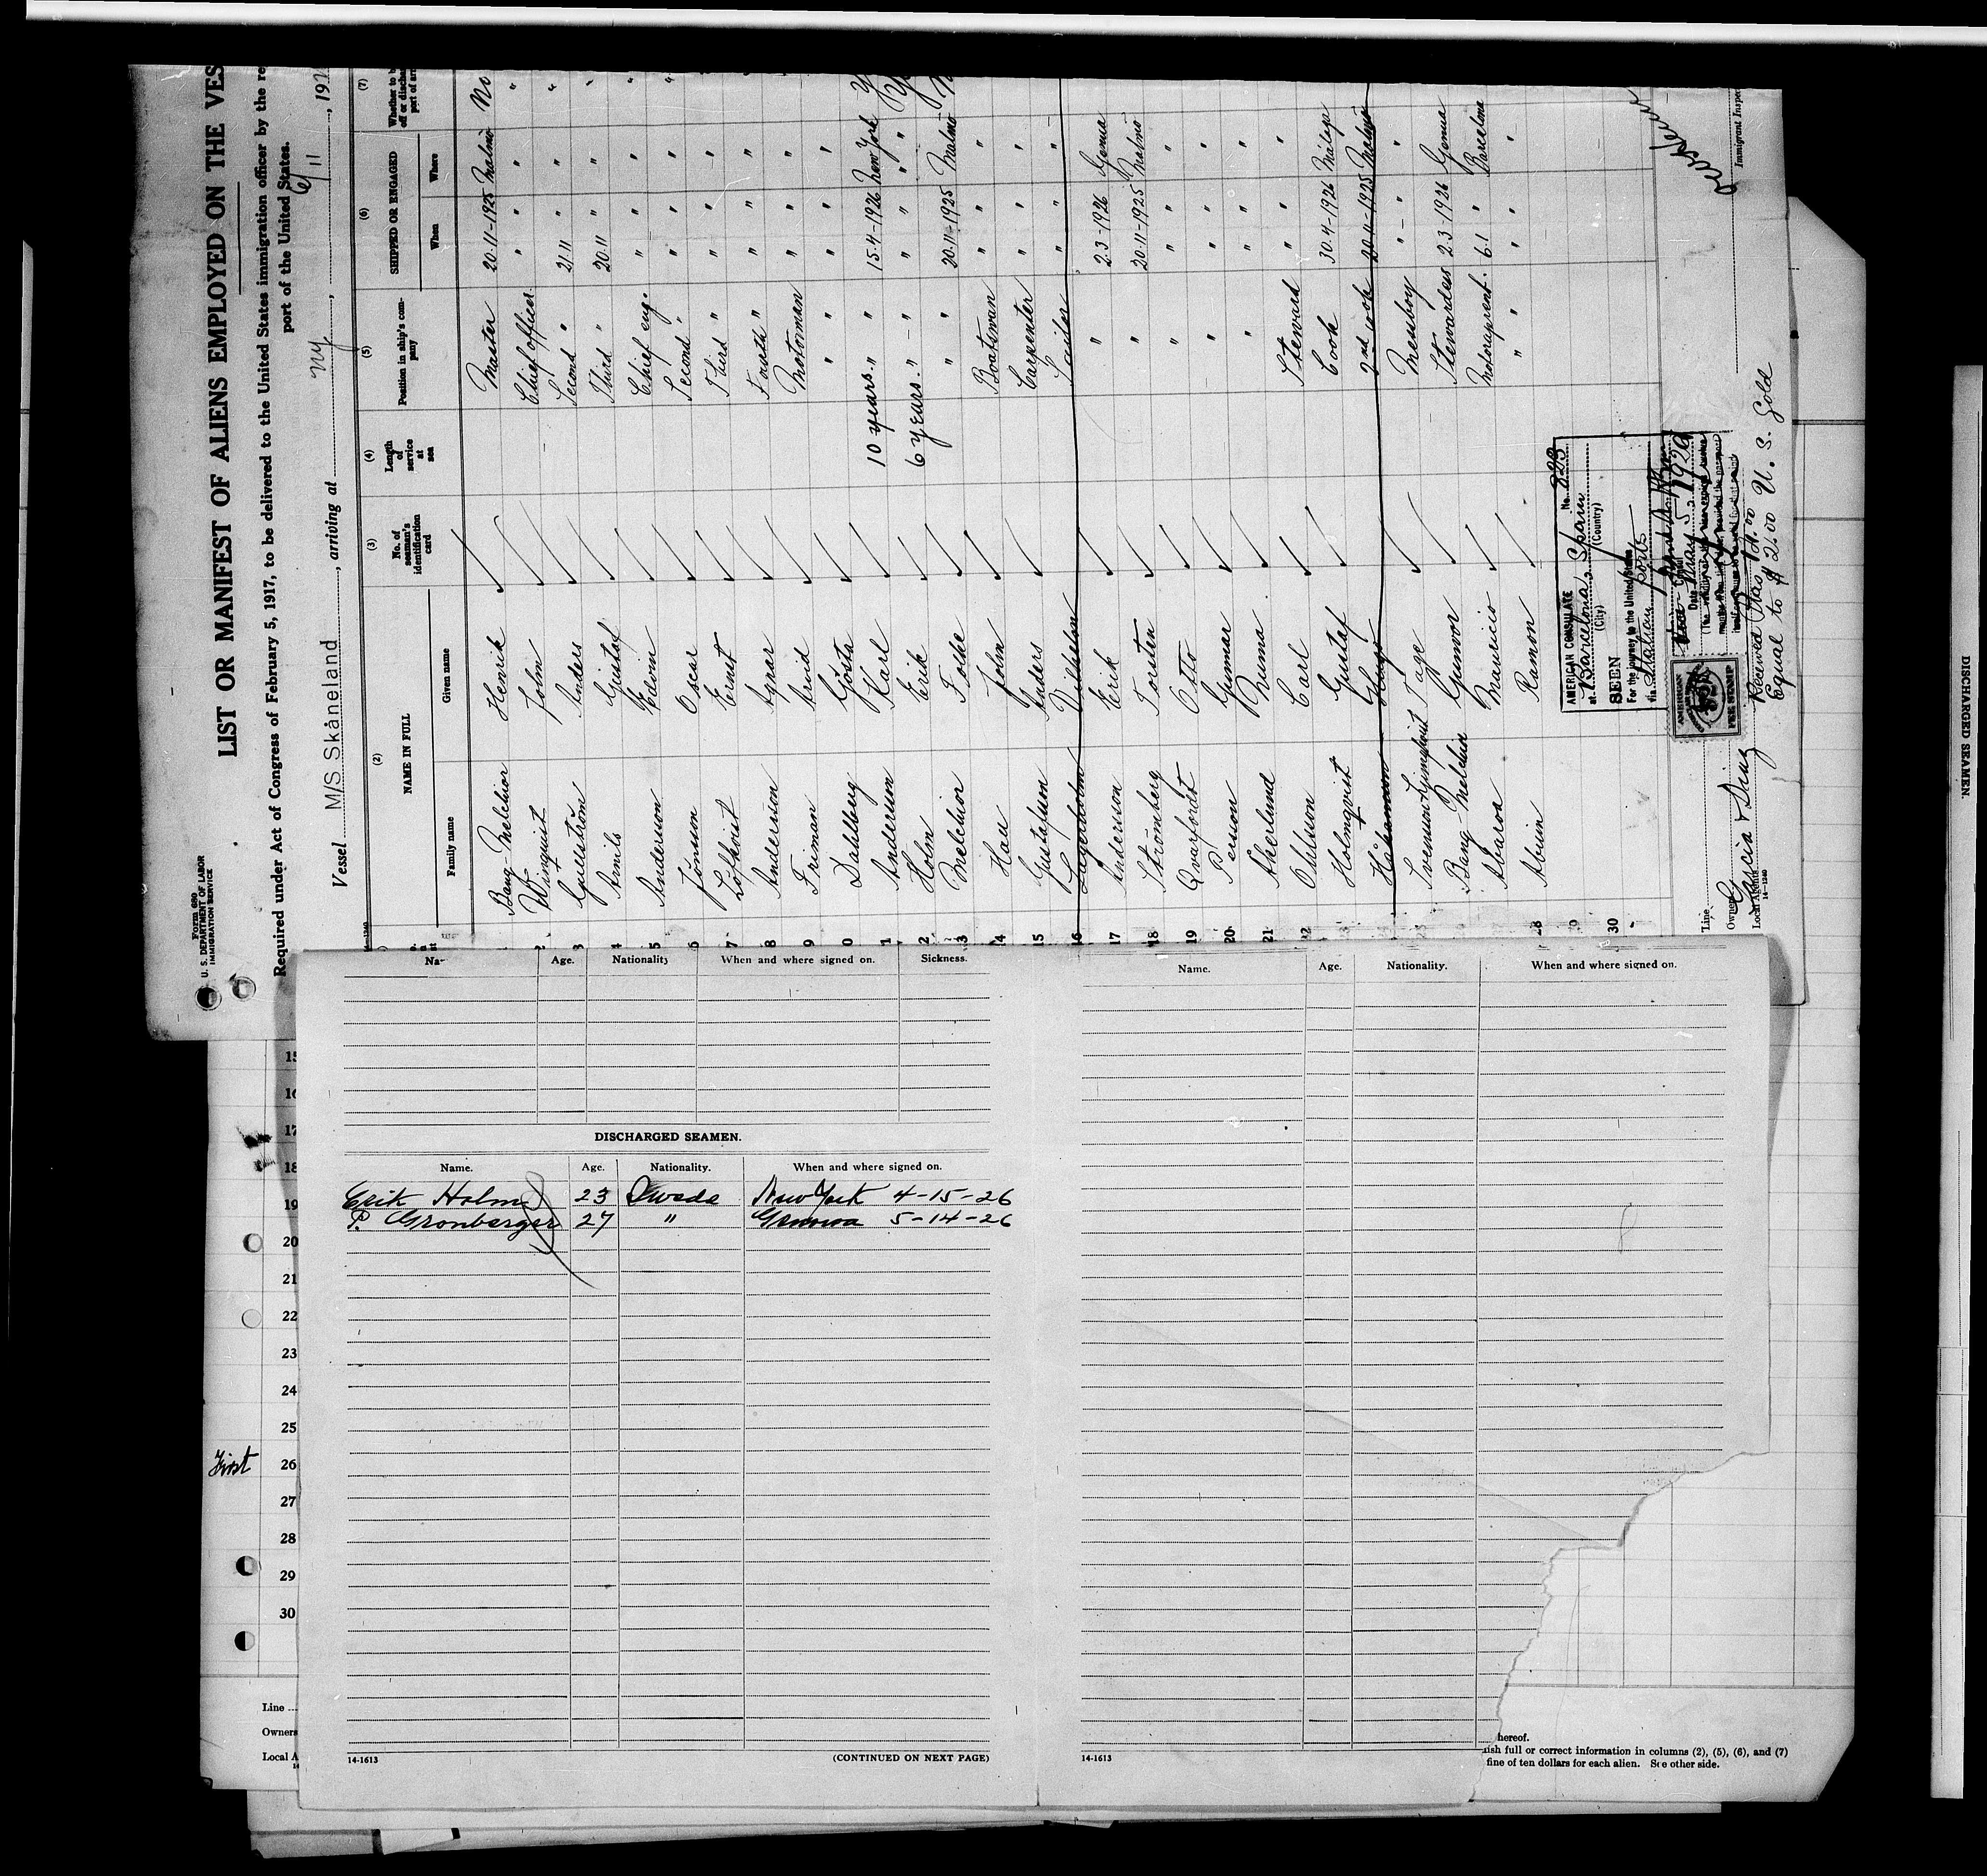 Form 680
U. S. DEPARTMENT OF LABOR
IMMIGRATION SERVICE
LIST OR MANIFEST OF ALIENS EMPLOYED ON THE VES
Required under Act of Congress of February 5, 1917, to be delivered to the United States immigration officer by the re
port of the United States.
Vessel M/S Skåneland, arriving at NY, 6/11, 192
(2) (3) (4) (5) (6) (7)
NAME IN FULL No. of seaman's identification card Length of service at sea Position in ship's company SHIPPED OR ENGAGED Whether to b
off or discha
port of arr
Family name Given name When Where
Bang-Melchior Henrik Master 20.11-1925 Malmö No
2 Winquist John Chief officer " " " "
3 Anders Second " 21.11 " " "
4 Arnils Gustaf Third " 20.11 " " "
5 Andersson Edvin Chief eng. " " " "
6 Jönsson Oscar Second " " " " "
7 Löfkvist Ernst Third " " " "
8 Andersson Agnar Fourth " " " "
9 Friman Arvid Motorman " " "
0 Dahlberg Gösta " " " "
1 Andersson Karl 10 years. " " 15.4-1926 New York
2 Holm Erik 6 years. " - " " " " "
3 Melchior Folke " " 20.11-1925 Malmö
14 Hall John Boatswan " " "
15 Gustafsson Anders Carpenter " " "
16 Lagerholm Vilhelm Sailor " " "
17 Anderson Erik " 2.3-1926 Genua
18 Strömberg Torsten " 20.11-1925 Malmö
19 Qvarfordt Otto " " " "
20 Persson Gunnar " " " "
21 Åkerlund Runa " " " "
22 Ohlsson Carl Steward " " "
Holmqvist Gustaf Cook 30.4-1926 Malaga
Håkansson Hugo 2nd cook 20.11-1925 Malmö
Svensson Ljungqvist Tage Messboy " - " "
Bang-Melchior Gunvor Stewardess 2.3-1926 Genua
Abaroa Mauricio Motoraprent. 6.1 " Barcelona
28 Abuin Ramon " " " " "
29
30
AMERICAN CONSULATE No. 823
at Barcelona, Spain
(City) (Country)
SEEN
For the journey to the United States
via Italian ports
Date May 5 1926
AMERICAN
FEE STAMP
Received Ptas 14.00
Equal to $2.00 U. S. Gold
Line
Owners
Local Agents Garcia & Diaz
14-1240
Immigrant Inspec
Age. Nationality When and where signed on. Sickness.
DISCHARGED SEAMEN.
Name. Age. Nationality. When and where signed on.
Erik Holm 23 Swede New York 4-15-26
P. Gronberger 27 " Gennoa 5-14-26
14-1613 (CONTINUED ON NEXT PAGE)
Name. Age. Nationality. When and where signed on.
14-1613
15
16
17
18
19
20
21
22
23
24
25
First 26
27
28
29
30
Line
Owners
Local A
hereof.
ish full or correct information in columns (2), (5), (6), and (7)
fine of ten dollars for each alien. See other side.
DISCHARGED SEAMEN.